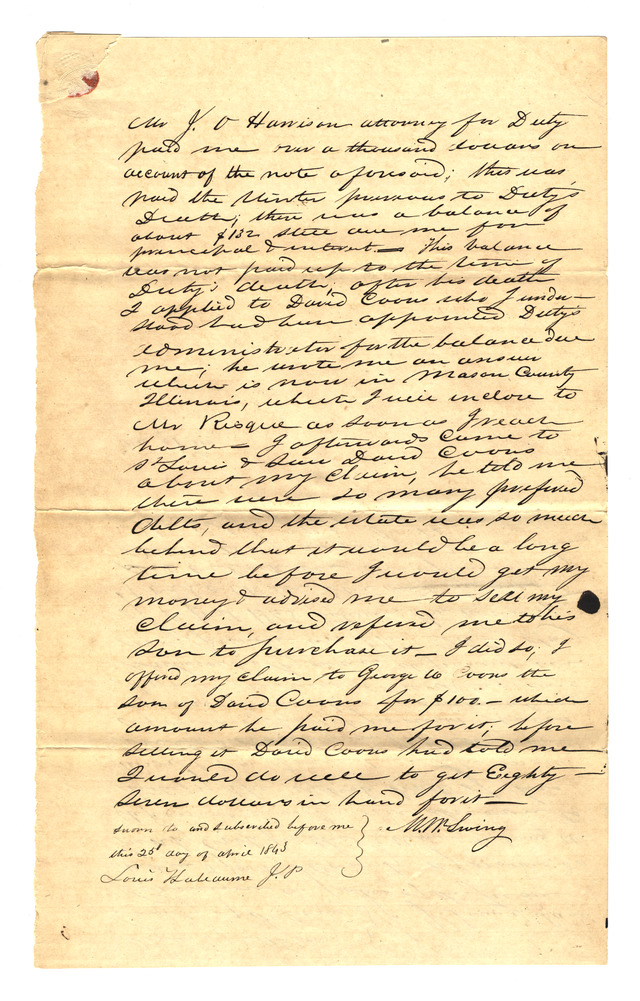 Mr J. O Harrison attorney for Duty
paid me over a thousand dollars on
account of the note aforesaid; this was
paid the Winter previous to Duty's
Death; there was a balance of
about $132 still due me for
principal & interest. — This balance
was not paid up to the time of
Duty's death; after his death
I applied to David Coons who I under-
stood had been appointed Duty's
administrator for the balance due
me; he wrote me an answer
which is now in Mason County
Illinois, which I will inclose to
Mr Risque as soon as I reach
home — I afterwards came to
St Louis & saw David Coons
about my claim, he told me
there were so many prefered
debts, and the estate was so much
behind that it would be a long
time before I would get my
money & advised me to sell my
claim, and refered me to his
son to purchase it — I did so; I
offered my claim to George W Coons the
son of David Coons for $100. — which
amount he paid me for it; before
selling it David Coons had told me
I would do well to get Eighty —
seven dollars in hand for it —
sworn to and subscribed before me
this 25t day of april 1843
Louis Labeaume J. P